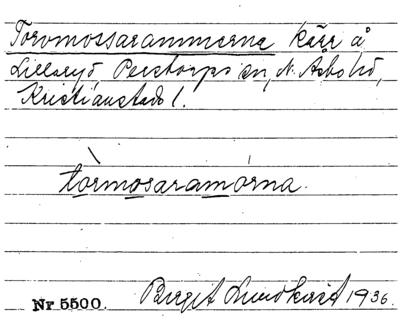 Torvmossarammerna kärr å
Lillaryd, Perstorps sn, N. Åsbo hd,
Kristianstads l.
tòrmosaramórna.
Nr 5500. Birgit Lundkvist 1936.